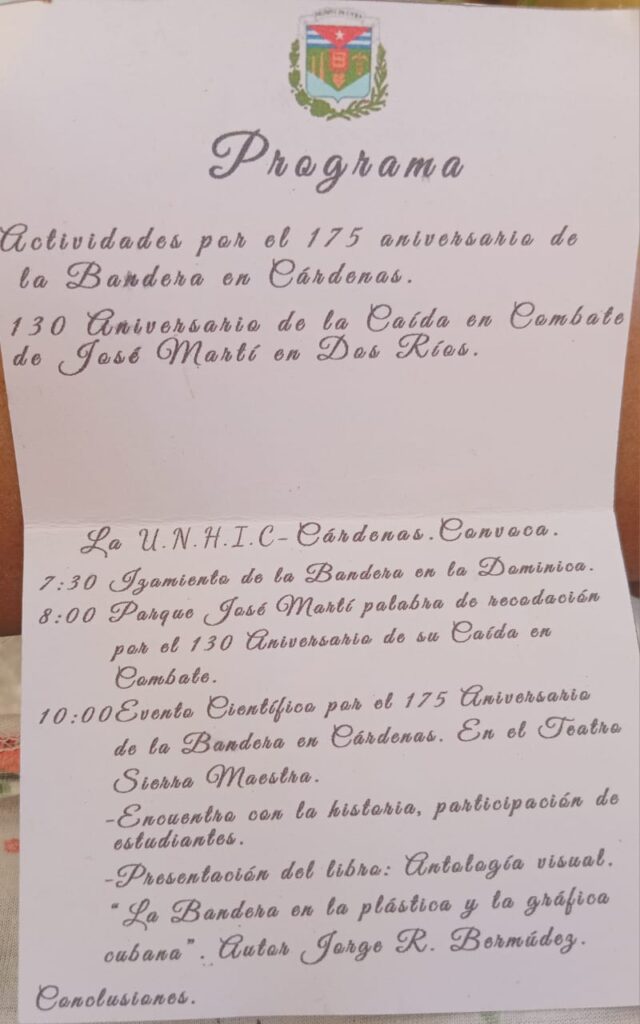 Programa
Actividades por el 175 aniversario de
la Bandera en Cárdenas.
130 Aniversario de la Caída en Combate
de José Martí en Dos Ríos.
La U.N.H.I.C-Cárdenas.Convoca.
7:30 Izamiento de la Bandera en la Dominica.
8:00 Parque José Martí palabra de recodación
por el 130 Aniversario de su Caída en
Combate.
10:00Evento Científico por el 175 Aniversario
de la Bandera en Cárdenas. En el Teatro
Sierra Maestra.
-Encuentro con la historia, participación de
estudiantes.
-Presentación del libro: Antología visual.
"La Bandera en la plástica y la gráfica
cubana". Autor Jorge R. Bermúdez.
Conclusiones.